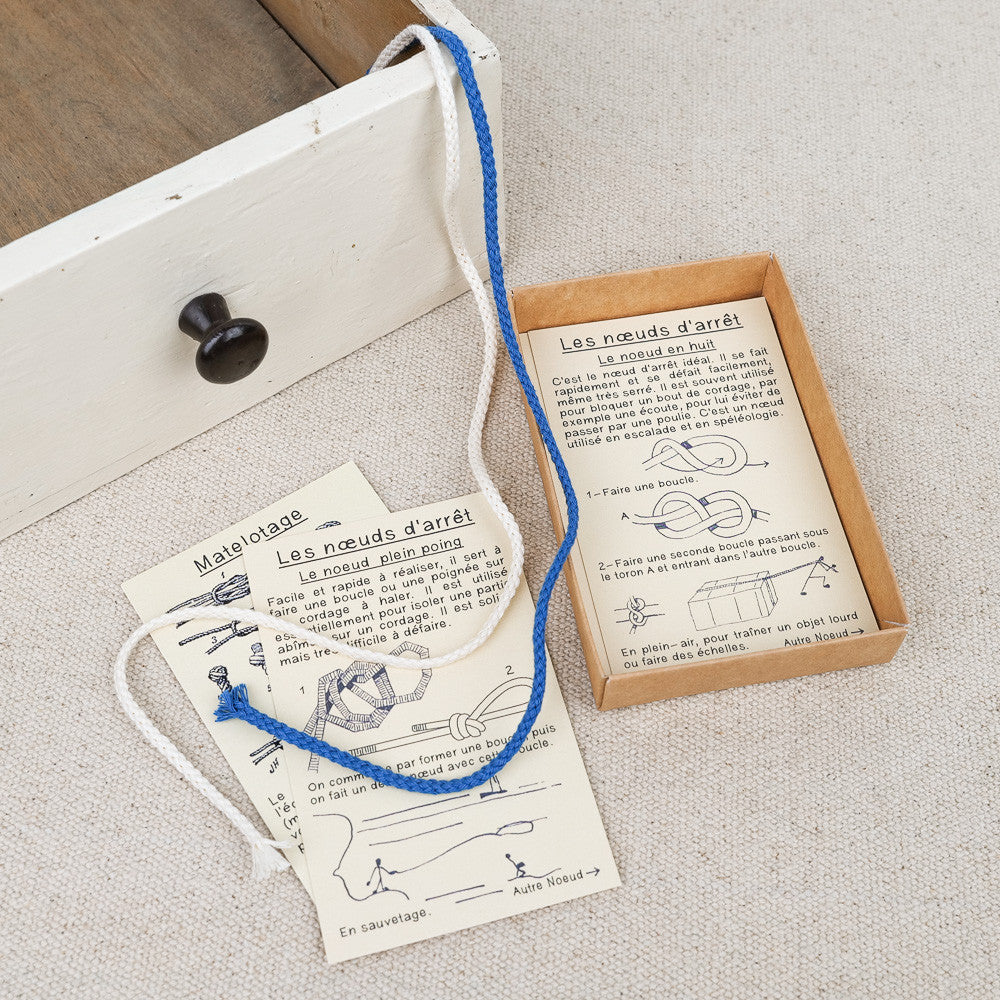 Les nœuds d'arrêt
Le noeud en huit
C'est le nœud d'arrêt idéal. Il se fait
rapidement et se défait facilement,
même très serré. Il est souvent utilisé
pour bloquer un bout de cordage, par
exemple une écoute, pour lui éviter de
passer par une poulie. C'est un nœud
utilisé en escalade et en spéléologie.
1-Faire une boucle.
A
2-Faire une seconde boucle passant sous
le toron A et entrant dans l'autre boucle.
En plein-air, pour traîner un objet lourd
ou faire des échelles.
Autre Noeud→
Matelotage
3
JH
Le
Les nœuds d'arrêt
Le noeud plein poing
Facile et rapide à réaliser, il sert à
faire une boucle ou une poignée sur
cordage à haler. Il est utilisé
pour isoler une
sur un cordage. Il est
mais difficile à défaire.
1
2
On par former une puis
on fait un nœud avec
Autre Noeud→
En sauvetage.